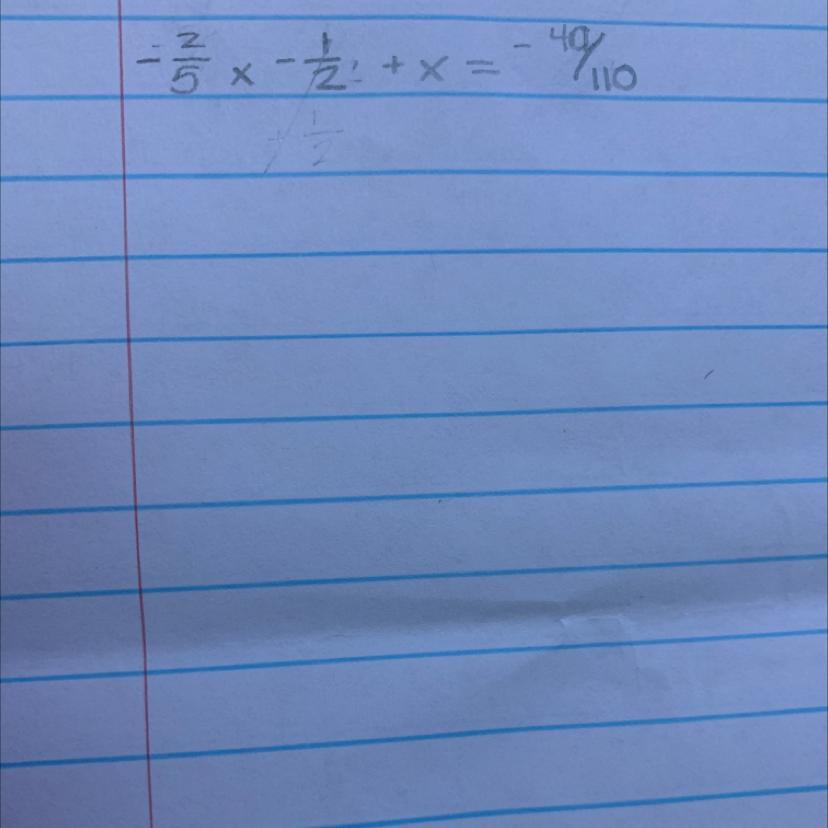 -2/5 x - 1/2 + x = - 40/110
+ 1/2